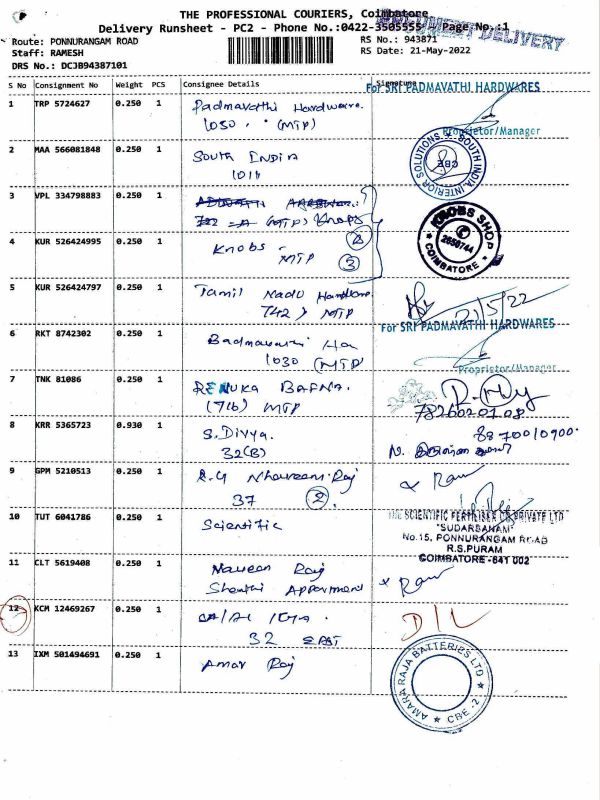 THE PROFESSIONAL COURIERS, Coimbatore
Delivery Runsheet - PC2 - Phone No.:0422-3505555 Page No.:1
DOCUMENT DELIVERY
Route: PONNURANGAM ROAD
RS No.: 943871
Staff: RAMESH
RS Date: 21-May-2022
DRS No.: DCJB94387101
S No Consignment No Weight PCS Consignee Details Signature
For SRI PADMAVATHI HARDWARES
1 TRP 5724627 0.250 1 Padmavathi Hardware.
1030 . (MTP)
Proprietor/Manager
2 MAA 566081848 0.250 1 South India
1011
SOUTH INDIA INTERIOR SOLUTIONS CBE
3 VPL 334798883 0.250 1
(MTP) Knobs
KNOBS SHOP
2658744
COIMBATORE
4 KUR 526424995 0.250 1 Knobs -
MTP
3
5 KUR 526424797 0.250 1 Tamil Nadu Hardware
742 MTP
21/5/22
For SRI PADMAVATHI HARDWARES
6 RKT 8742302 0.250 1 Badmavathi Ha
1030 (MTP)
Proprietor/Manager
7 TNK 81086 0.250 1 RENUKA BAFNA.
(716) MTP
8 KRR 5365723 0.930 1 S.Divya.
32(B)
9 GPM 5210513 0.250 1 R.G Nhaveen Raj
37 2
Ram
10 TUT 6041786 0.250 1 Scientific
THE SCIENTIFIC FERTILISER CO PRIVATE LTD
"SUDARSANAM"
No.15, PONNURANGAM ROAD
R.S.PURAM
COIMBATORE-641 002
11 CLT 5619408 0.250 1 Naveen Raj
Shanthi Appartment
Ram
12 KCM 12469267 0.250 1
32 EAST
D/L
13 IXM 501494691 0.250 1 Amar Raj
AMARA RAJA BATTERIES LTD
CBE-2